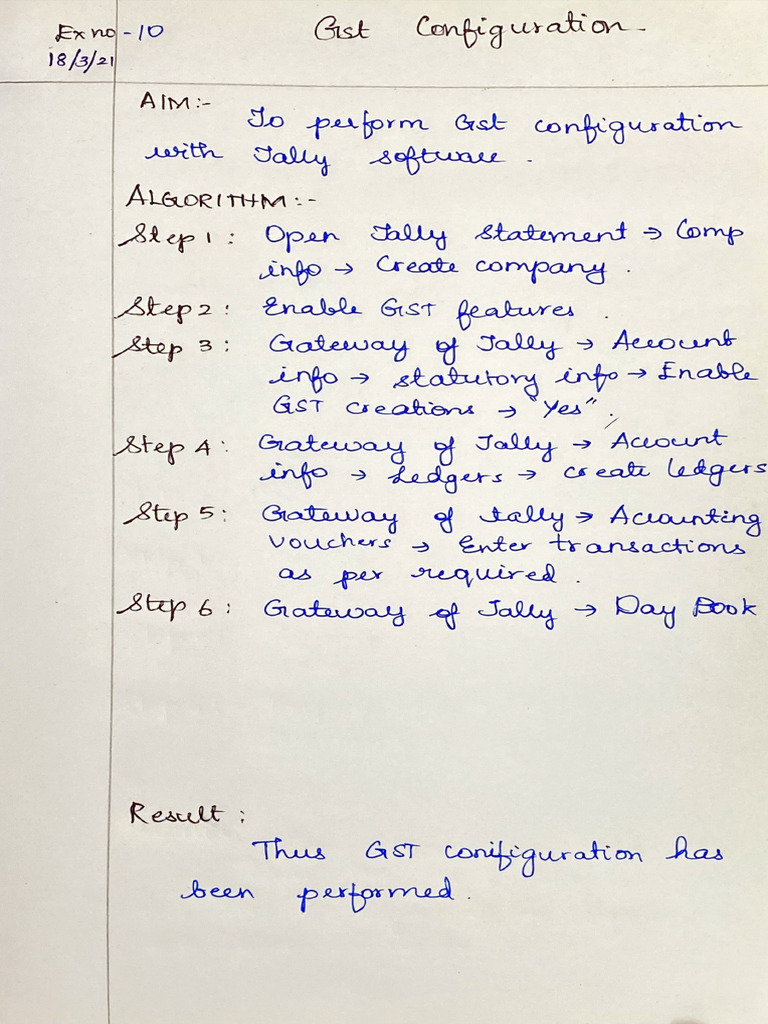 Ex no - 10
Gst Configuration
18/3/21
AIM:-
To perform Gst configuration
with Tally software.
ALGORITHM:-
Step 1: Open Tally Statement → Comp
info → Create company.
Step 2: Enable GST features.
Step 3: Gateway of Tally → Account
info → statutory info → Enable
GST creations → "Yes".
Step 4: Gateway of Tally → Account
info → Ledgers → create ledgers
Step 5: Gateway of tally → Accounting
Vouchers → Enter transactions
as per required.
Step 6: Gateway of Tally → Day Book
Result:
Thus GST conifiguration has
been performed.